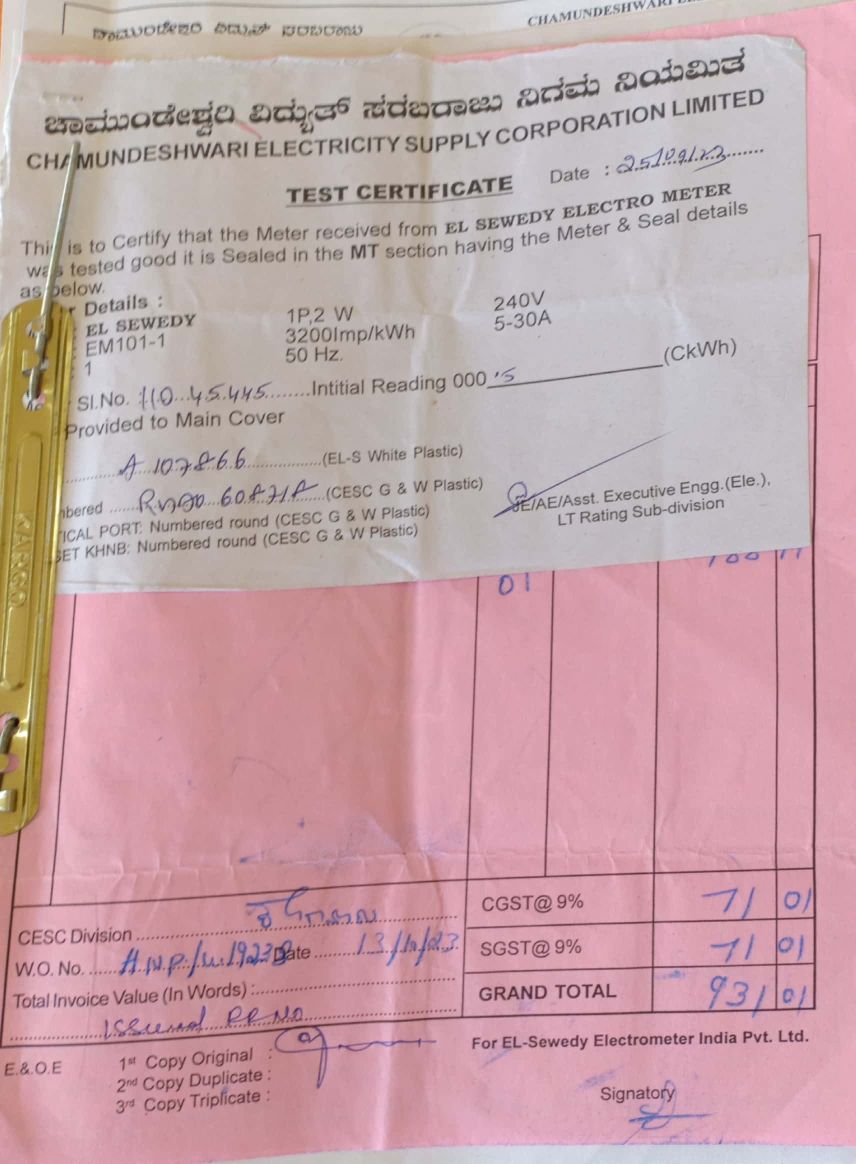 ಚಾಮುಂಡೇಶ್ವರಿ ವಿದ್ಯುತ್ ಸರಬರಾಜು
CHAMUNDESHWARI
ಚಾಮುಂಡೇಶ್ವರಿ ವಿದ್ಯುತ್ ಸರಬರಾಜು ನಿಗಮ ನಿಯಮಿತ
CHAMUNDESHWARI ELECTRICITY SUPPLY CORPORATION LIMITED
TEST CERTIFICATE Date : 25/09/23
This is to Certify that the Meter received from EL SEWEDY ELECTRO METER
was tested good it is Sealed in the MT section having the Meter & Seal details
as below.
Details :
EL SEWEDY 1P,2 W 240V
EM101-1 3200Imp/kWh 5-30A
1 50 Hz.
Sl.No. 11045445 Intitial Reading 000 (CkWh)
Provided to Main Cover
A 107866 (EL-S White Plastic)
(CESC G & W Plastic)
ICAL PORT: Numbered round (CESC G & W Plastic)
SET KHNB: Numbered round (CESC G & W Plastic)
JE/AE/Asst. Executive Engg.(Ele.),
LT Rating Sub-division
KARGO
01
CGST@ 9% 71 01
CESC Division
SGST@ 9% 71 01
W.O. No. Date
Total Invoice Value (In Words) :
GRAND TOTAL 931 01
Issued RR NO
For EL-Sewedy Electrometer India Pvt. Ltd.
E.& O.E
1st Copy Original :
2nd Copy Duplicate :
3rd Copy Triplicate :
Signatory